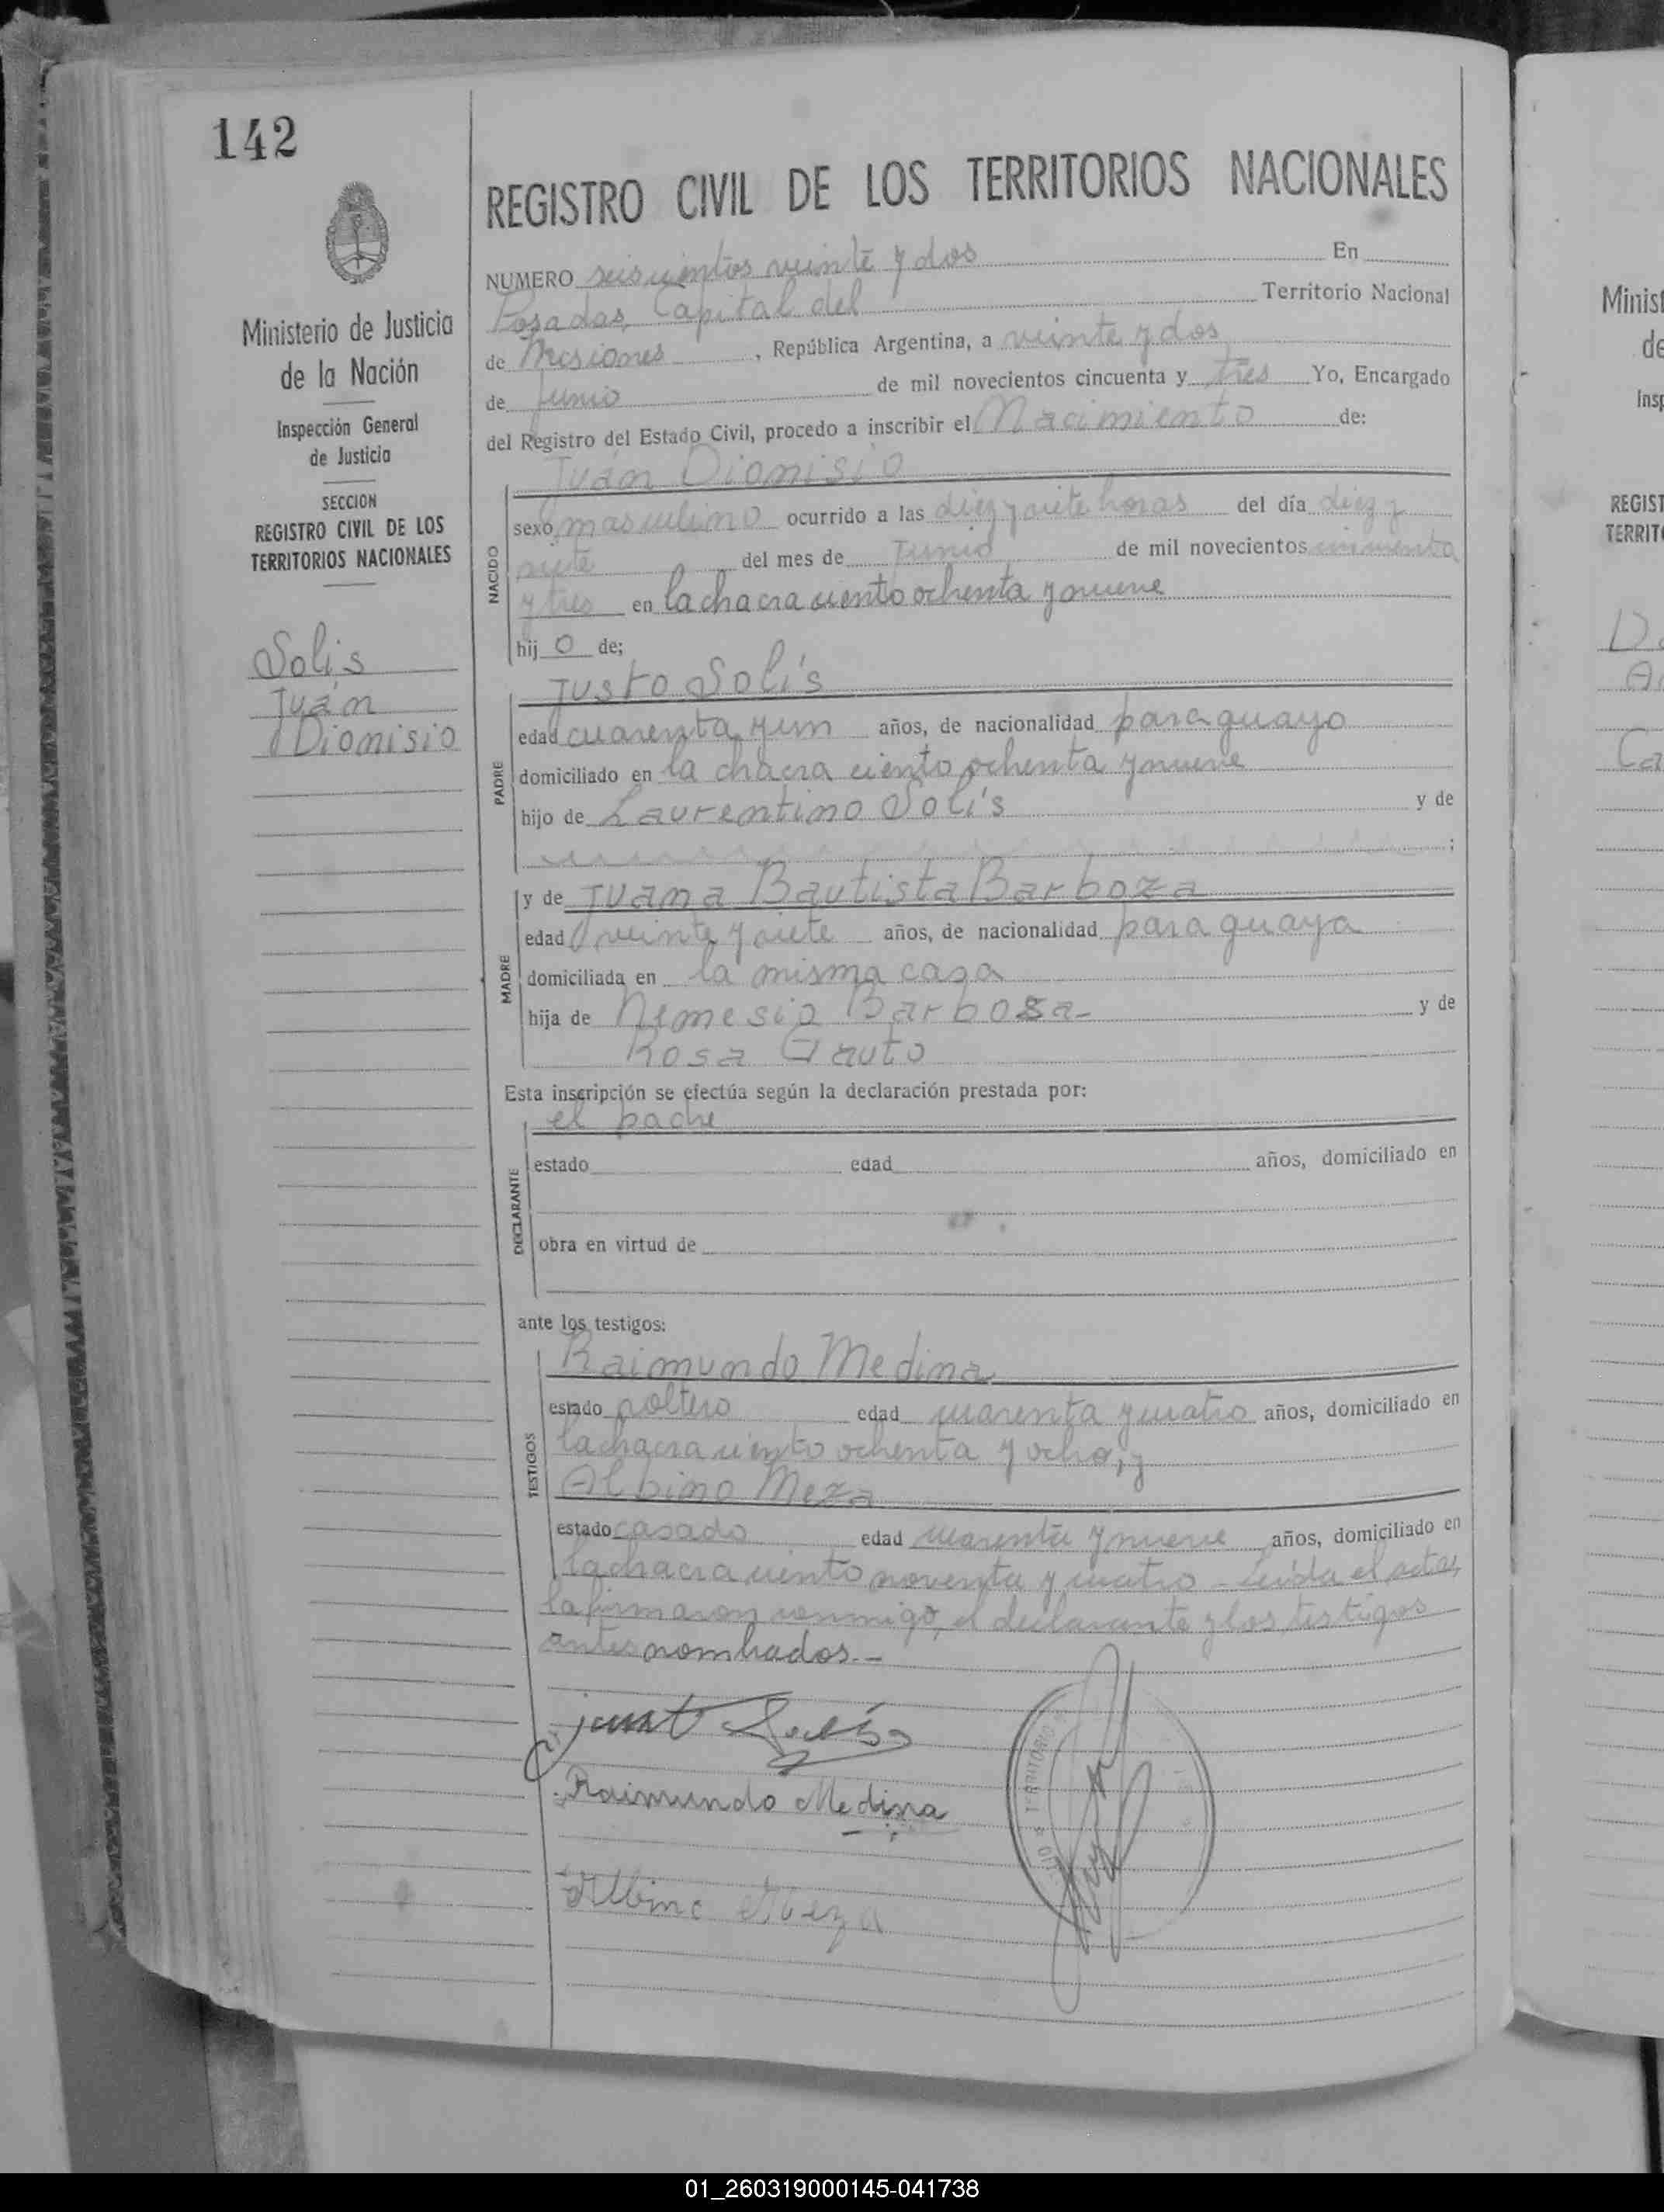 142
REGISTRO CIVIL DE LOS TERRITORIOS NACIONALES
Ministerio de Justicia
de la Nación
Inspección General
de Justicia
SECCION
REGISTRO CIVIL DE LOS
TERRITORIOS NACIONALES
Solis
Juán
Dionisio
NUMERO seiscientos veinte y dos En
Posadas, Capital del Territorio Nacional
de Misiones, República Argentina, a veinte y dos
de Junio de mil novecientos cincuenta y tres Yo, Encargado
del Registro del Estado Civil, procedo a inscribir el Nacimiento de:
Juán Dionisio
NACIDO
sexo masculino ocurrido a las diez y siete horas del día diez y
siete del mes de Junio de mil novecientos cincuenta
y tres en la chacra ciento ochenta y nueve
hij o de;
Justo Solís
PADRE
edad cuarenta y un años, de nacionalidad paraguayo
domiciliado en la chacra ciento ochenta y nueve
hijo de Laurentino Solís y de
;
y de Juana Bautista Barboza
MADRE
edad veinte y siete años, de nacionalidad paraguaya
domiciliada en la misma casa
hija de Nemesio Barbosa- y de
Rosa Gauto
Esta inscripción se efectúa según la declaración prestada por:
el padre
DECLARANTE
estado edad años, domiciliado en
obra en virtud de
ante los testigos:
Raimundo Medina
TESTIGOS
estado soltero edad cuarenta y cuatro años, domiciliado en
la chacra ciento ochenta y ocho, y
Albino Meza
estado casado edad cuarenta y nueve años, domiciliado en
la chacra ciento noventa y cuatro - Leída el acta,
la firmaron conmigo, el declarante y los testigos
antes nombrados.-
Justo Solís
Raimundo Medina
Albino Meza
TERRITORIO
Minist
de
Insp
REGIST
TERRITO
Ca
01_260319000145-041738